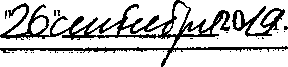 "26" сентября 2019.